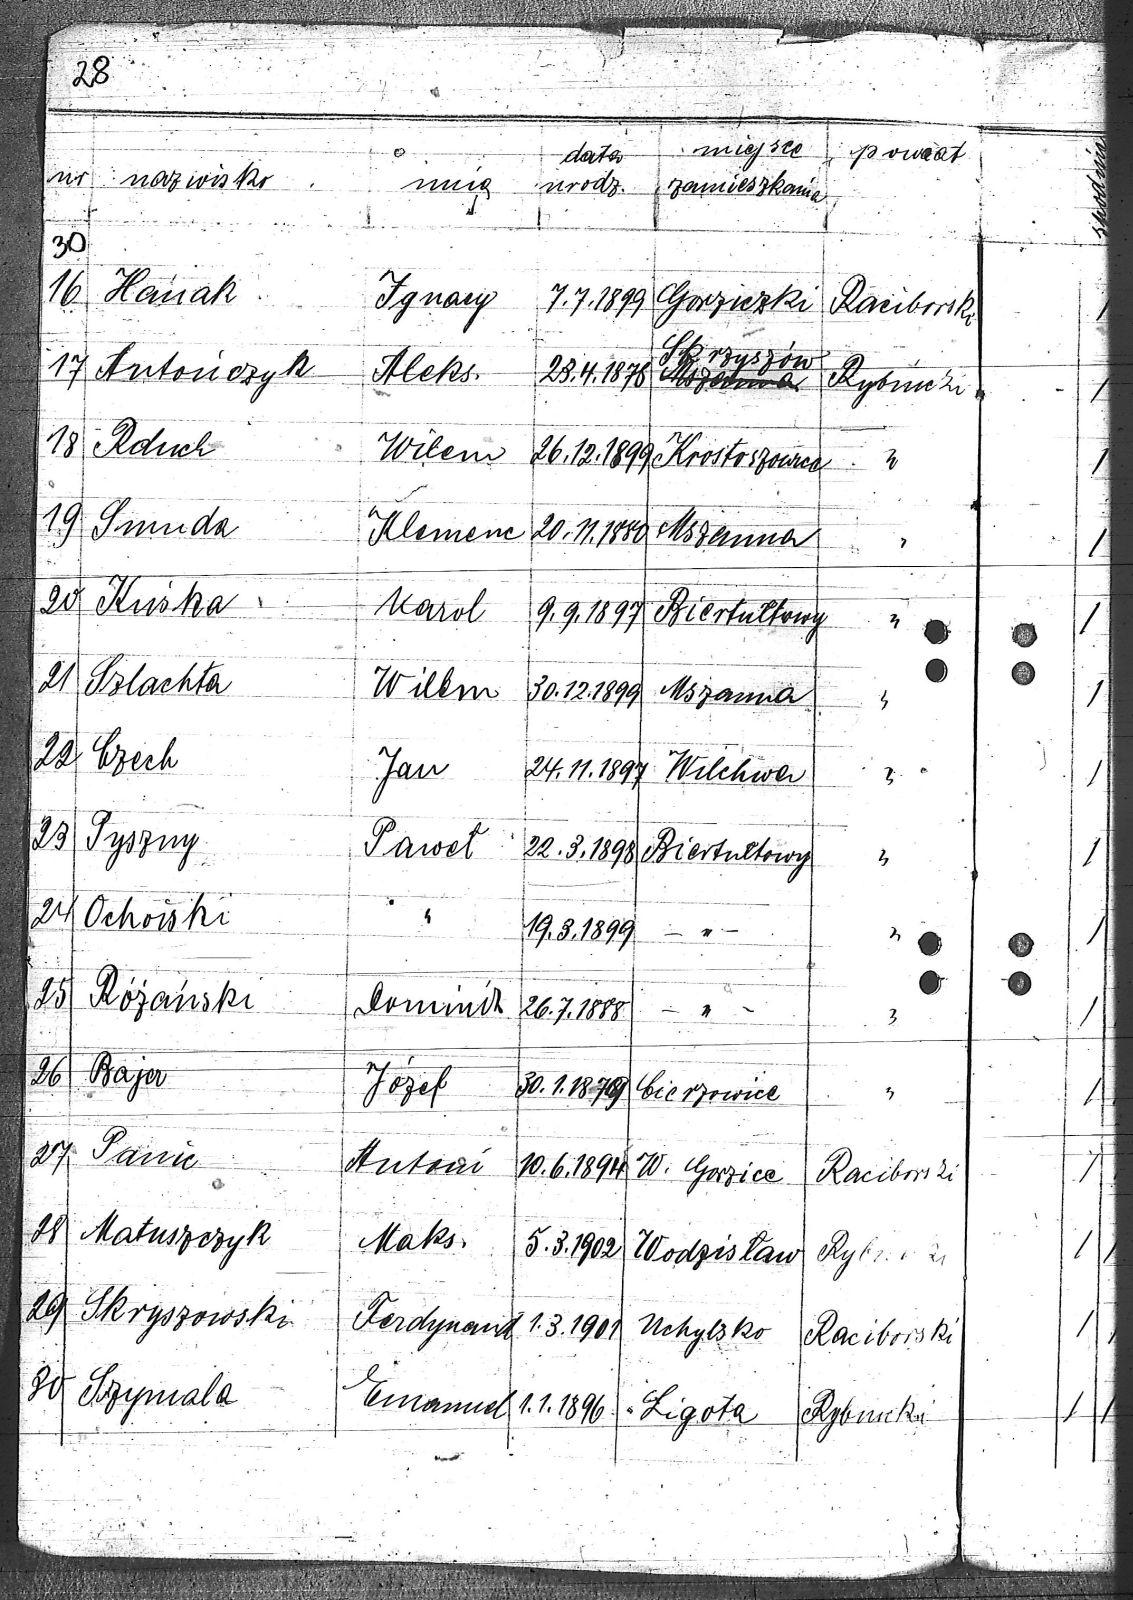 28
nr nazwisko imię data urodz. miejsce zamieszkania powiat
30
16 Hanak Ignacy 7.7.1899 Gorziczki Raciborski
17 Antończyk Aleks. 28.4.1878 Skrzyszów Mszanna Rybnicki
18 Rduch Wilem 26.12.1899 Krostoszowice "
19 Smuda Klemenc 20.11.1880 Mszanna "
20 Kuśka Karol 9.9.1897 Biertułtowy "
21 Szlachta Wilem 30.12.1899 Mszanna "
22 Czech Jan 24.11.1897 Wilchwa "
23 Pyszny Paweł 22.3.1898 Biertułtowy "
24 Ochojski " 19.3.1899 - " - "
25 Różański Dominik 26.7.1888 - " - "
26 Bajer Józef 30.1.1879 Cierzowice "
27 Panic Antoni 10.6.1894 W. Gorzice Raciborski
28 Matuszczyk Maks. 5.3.1902 Wodzisław
29 Skryszowski Ferdynand 1.3.1901 Uchylsko Raciborski
30 Szymala Emanuel 1.1.1896 Ligota Rybnicki